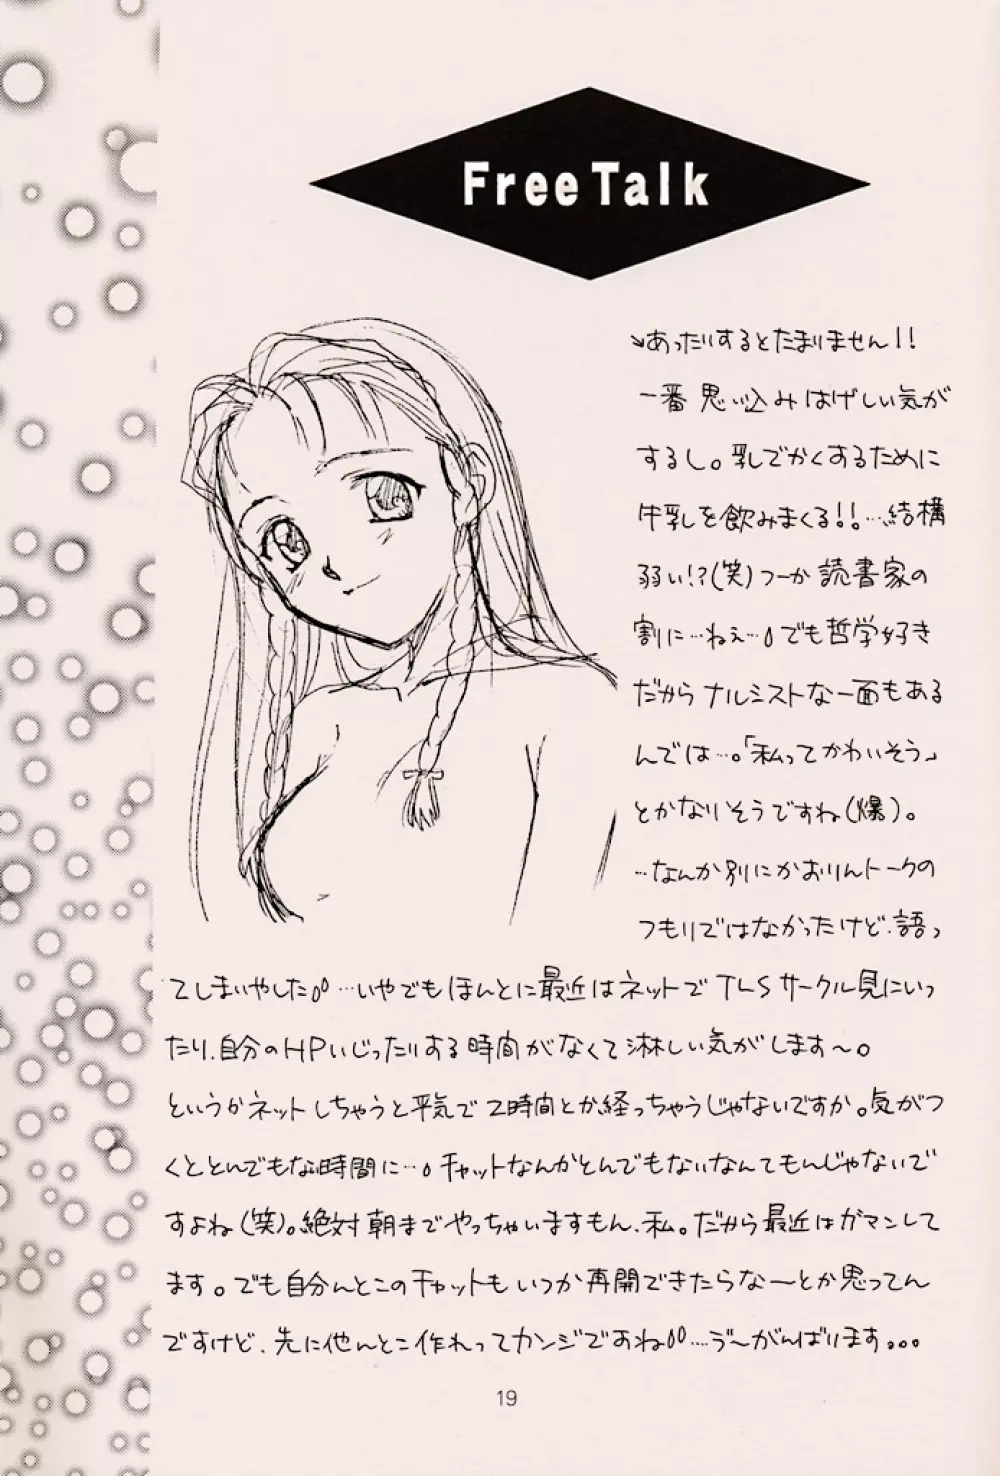 Free Talk
↘あったりするとたまりません!!
一番思い込みはげしい気が
するし。乳でかくするために
牛乳を飲みまくる!!…結構
弱い!?(笑)つーか読書家の
割に…ねぇ…。でも哲学好き
だからナルシストな一面もある
んでは…。「私ってかわいそう」
とかなりそうですね(爆)。
…なんか別にかおりんトークの
つもりではなかったけど、語っ
てしまいやした…いやでもほんとに最近はネットでTLSサークル見にいっ
たり、自分のHPいじったりする時間がなくて淋しい気がします〜。
というかネットしちゃうと平気で2時間とか経っちゃうじゃないですか。気がつ
くととんでもない時間に…。チャットなんかとんでもないなんてもんじゃないで
すよね(笑)。絶対朝までやっちゃいますもん、私。だから最近はガマンして
ます。でも自分んとこのチャットもいつか再開できたらなーとか思ってん
ですけど、先に他んとこ作れってカンジですね…う〜がんばります。。。
19